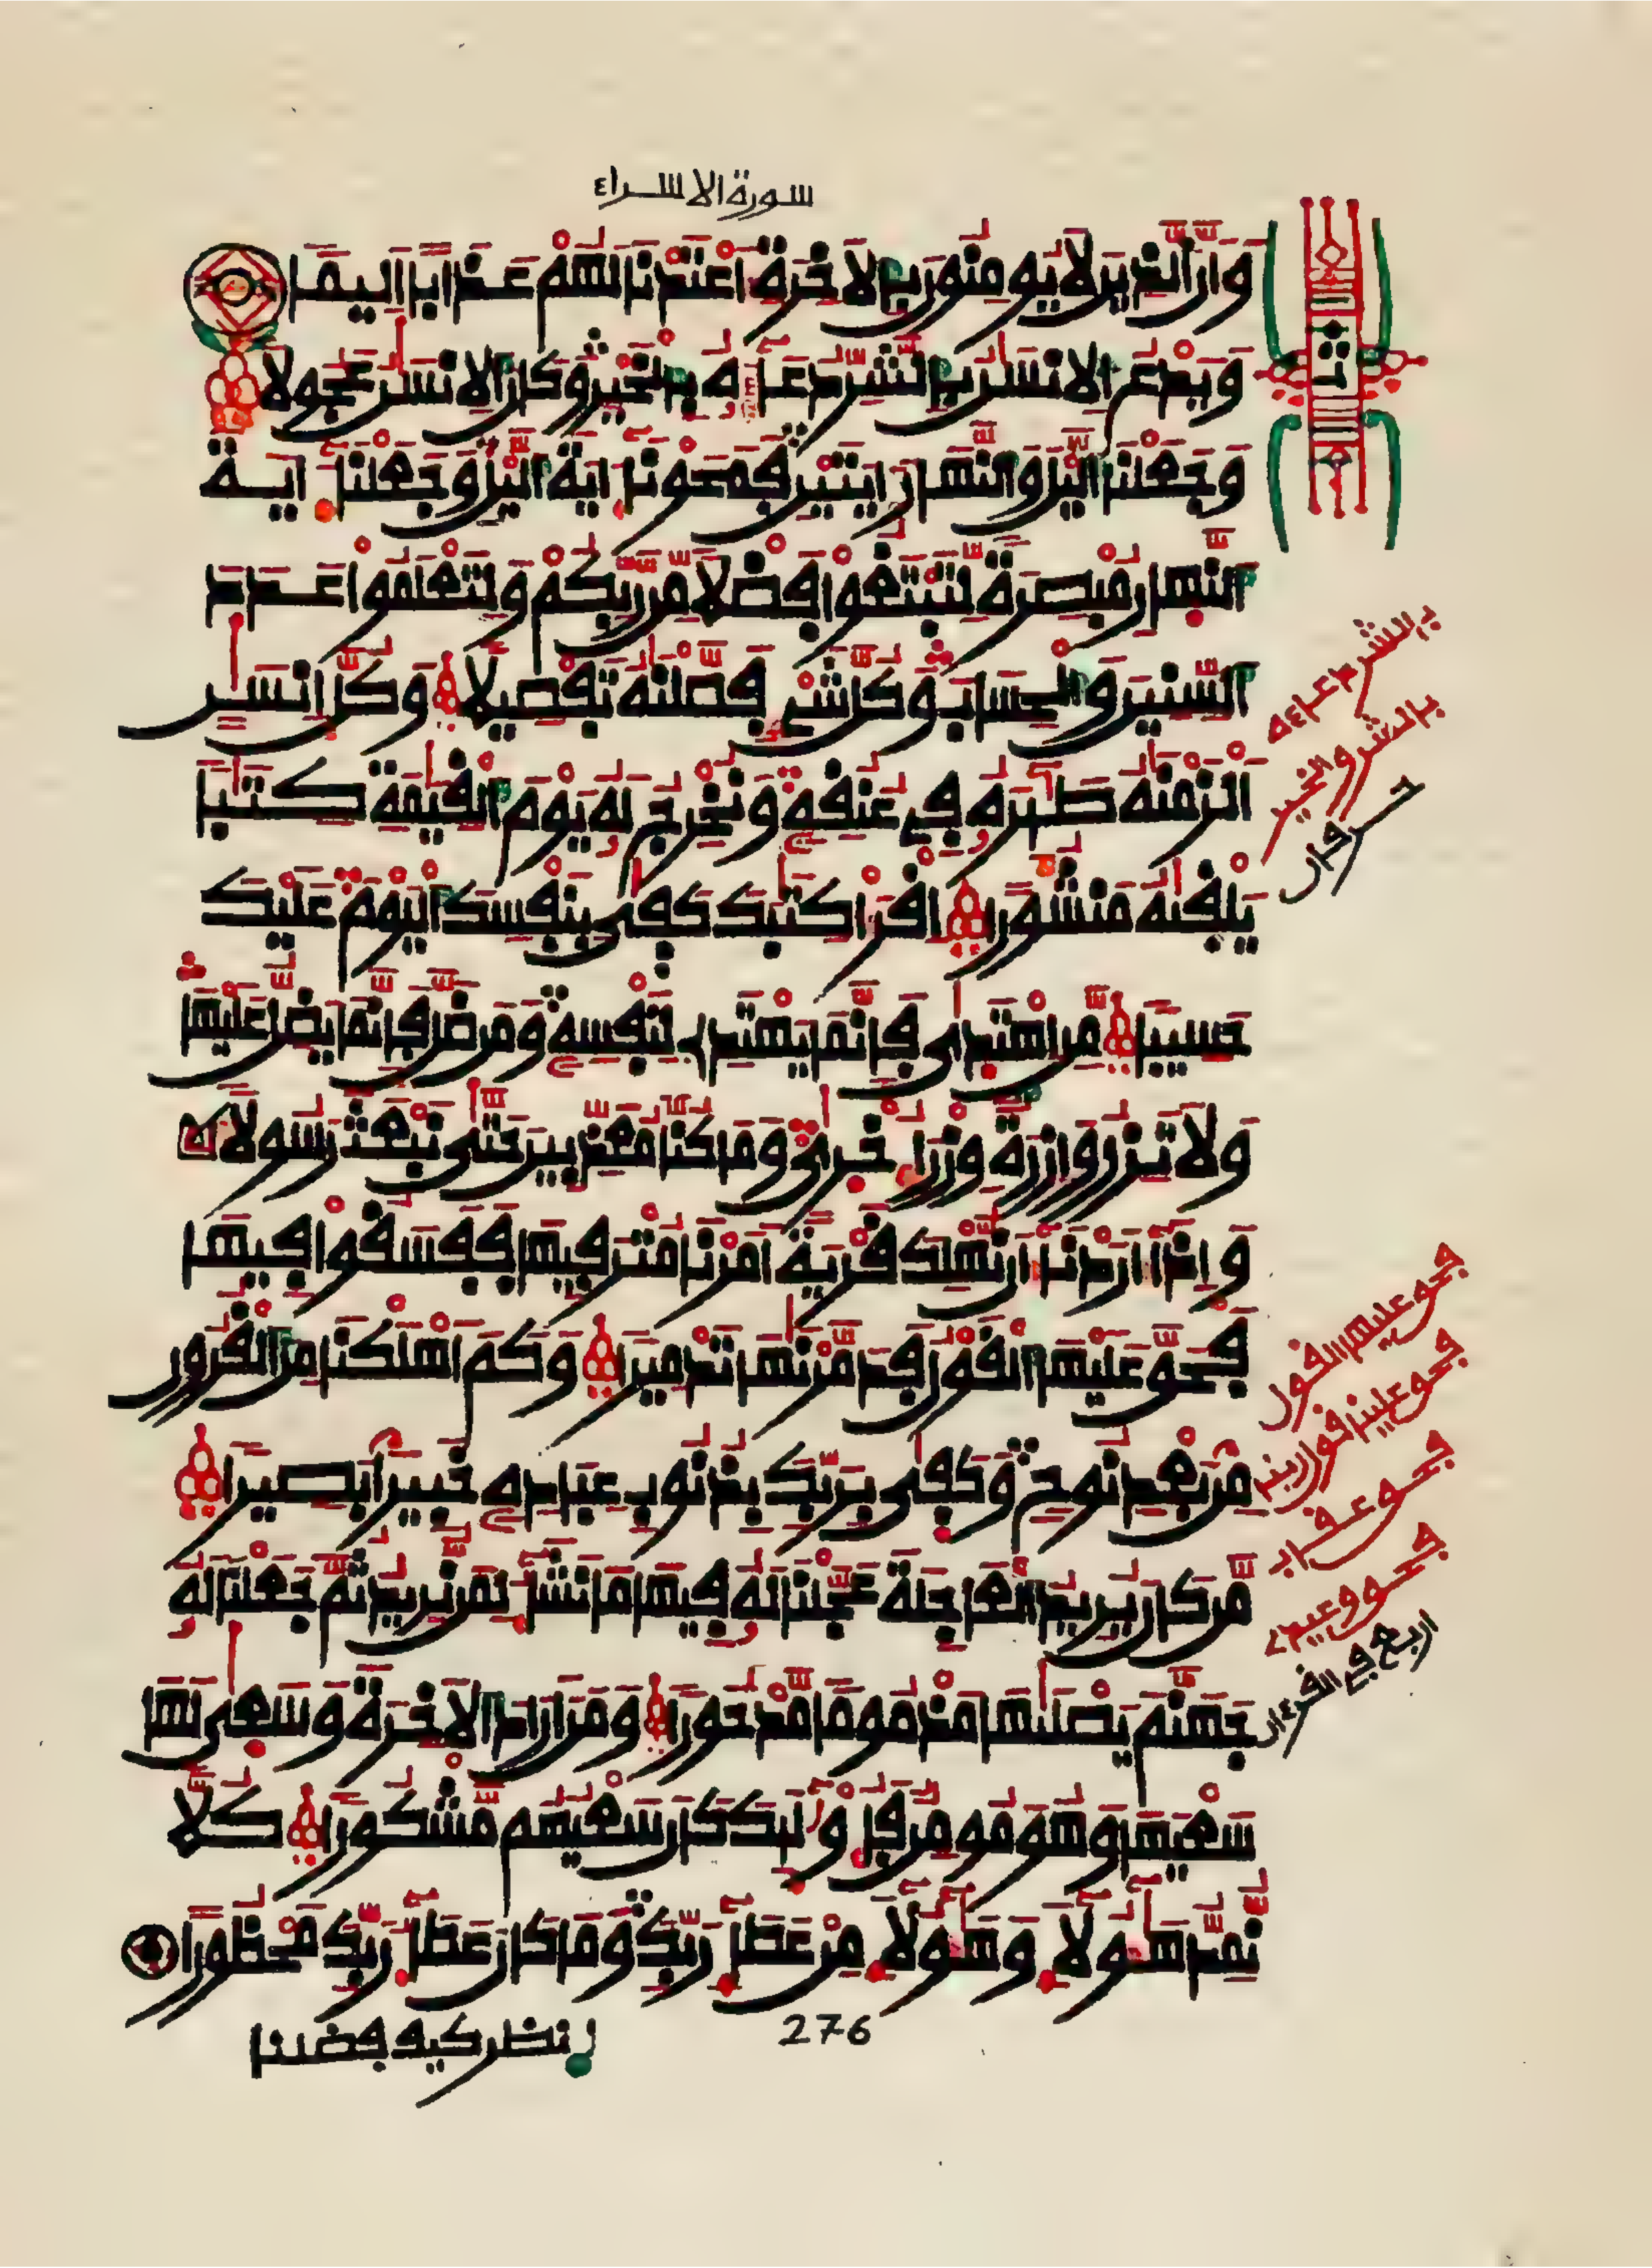 سورة الاسراء
وَأَنَّ ٱلذِينَ لَا يُومِنُونَ بِالَاخِرَةِ أَعْتَدْنَا لَهُمْ عَذَابًا اَلِيمًا
وَيَدْعُ اُلِانسَٰنُ بِالشَّرِّ دُعَآءَهُۥ بِالْخَيْرِ وَكَانَ اَلِانسَٰنُ عَجُولًا
وَجَعَلْنَا اَلَّيْلَ وَالنَّهَارَ ءَايَتَيْنِ فَمَحَوْنَآ ءَايَةَ اَلَّيْلِ وَجَعَلْنَآ ءَايَةَ
اَلنَّهَارِ مُبْصِرَةً لِّتَبْتَغُواْ فَضْلًا مِّن رَّبِّكُمْ وَلِتَعْلَمُواْ عَدَدَ
اَلسِّنِينَ وَالْحِسَابَ وَكُلَّ شَےْءٍ فَصَّلْنَٰهُ تَفْصِيلًا وَكُلَّ إِنسَٰنٍ
اَلْزَمْنَٰهُ طَٰٓئِرَهُۥ فِے عُنُقِهِۦ وَنُخْرِجُ لَهُۥ يَوْمَ اَلْقِيَٰمَةِ كِتَٰبًا
يَلْقَىٰهُ مَنشُورًا اِقْرَأْ كِتَٰبَكَ كَفَىٰ بِنَفْسِكَ اَلْيَوْمَ عَلَيْكَ
حَسِيبًا مَّنِ اِهْتَدَىٰ فَإِنَّمَا يَهْتَدِے لِنَفْسِهِۦ وَمَن ضَلَّ فَإِنَّمَا يَضِلُّ عَلَيْهَا
وَلَا تَزِرُ وَازِرَةٌ وِزْرَ أُخْرَىٰ وَمَا كُنَّا مُعَذِّبِينَ حَتَّىٰ نَبْعَثَ رَسُولًا
وَإِذَآ أَرَدْنَآ أَن نُّهْلِكَ قَرْيَةً اَمَرْنَا مُتْرَفِيهَا فَفَسَقُواْ فِيهَا
فَحَقَّ عَلَيْهَا اَلْقَوْلُ فَدَمَّرْنَٰهَا تَدْمِيرًا وَكَمَ اَهْلَكْنَا مِنَ اَلْقُرُونِ
مِنۢ بَعْدِ نُوحٍ وَكَفَىٰ بِرَبِّكَ بِذُنُوبِ عِبَادِهِۦ خَبِيرًۢا بَصِيرًا
مَّن كَانَ يُرِيدُ اُلْعَاجِلَةَ عَجَّلْنَا لَهُۥ فِيهَا مَا نَشَآءُ لِمَن نُّرِيدُ ثُمَّ جَعَلْنَا لَهُۥ
جَهَنَّمَ يَصْلَىٰهَا مَذْمُومًا مَّدْحُورًا وَمَنَ اَرَادَ اَلَاخِرَةَ وَسَعَىٰ لَهَا
سَعْيَهَا وَهُوَ مُومِنٌ فَأُوْلَٰٓئِكَ كَانَ سَعْيُهُم مَّشْكُورًا كُلًّا
نُّمِدُّ هَٰٓؤُلَآءِ وَهَٰٓؤُلَآءِ مِنْ عَطَآءِ رَبِّكَ وَمَا كَانَ عَطَآءُ رَبِّكَ مَحْظُورًا
انظر كيف فضلنا
276
ثمن
بالشر دعاءه
بالشر والخير
حرفان
فحق عليها القول
فحق علينا قول ربنا
فحق عقاب
فحق وعيد
اربع في القرءان